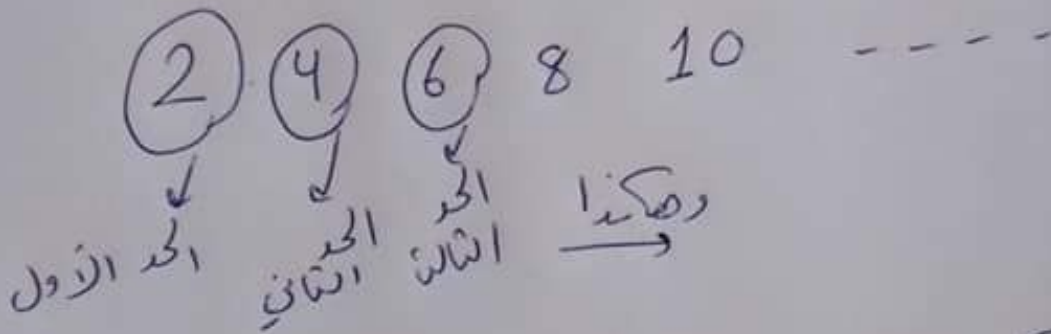 2 4 6 8 10 - - - -
الحد الأول الحد الثاني الحد الثالث وهكذا